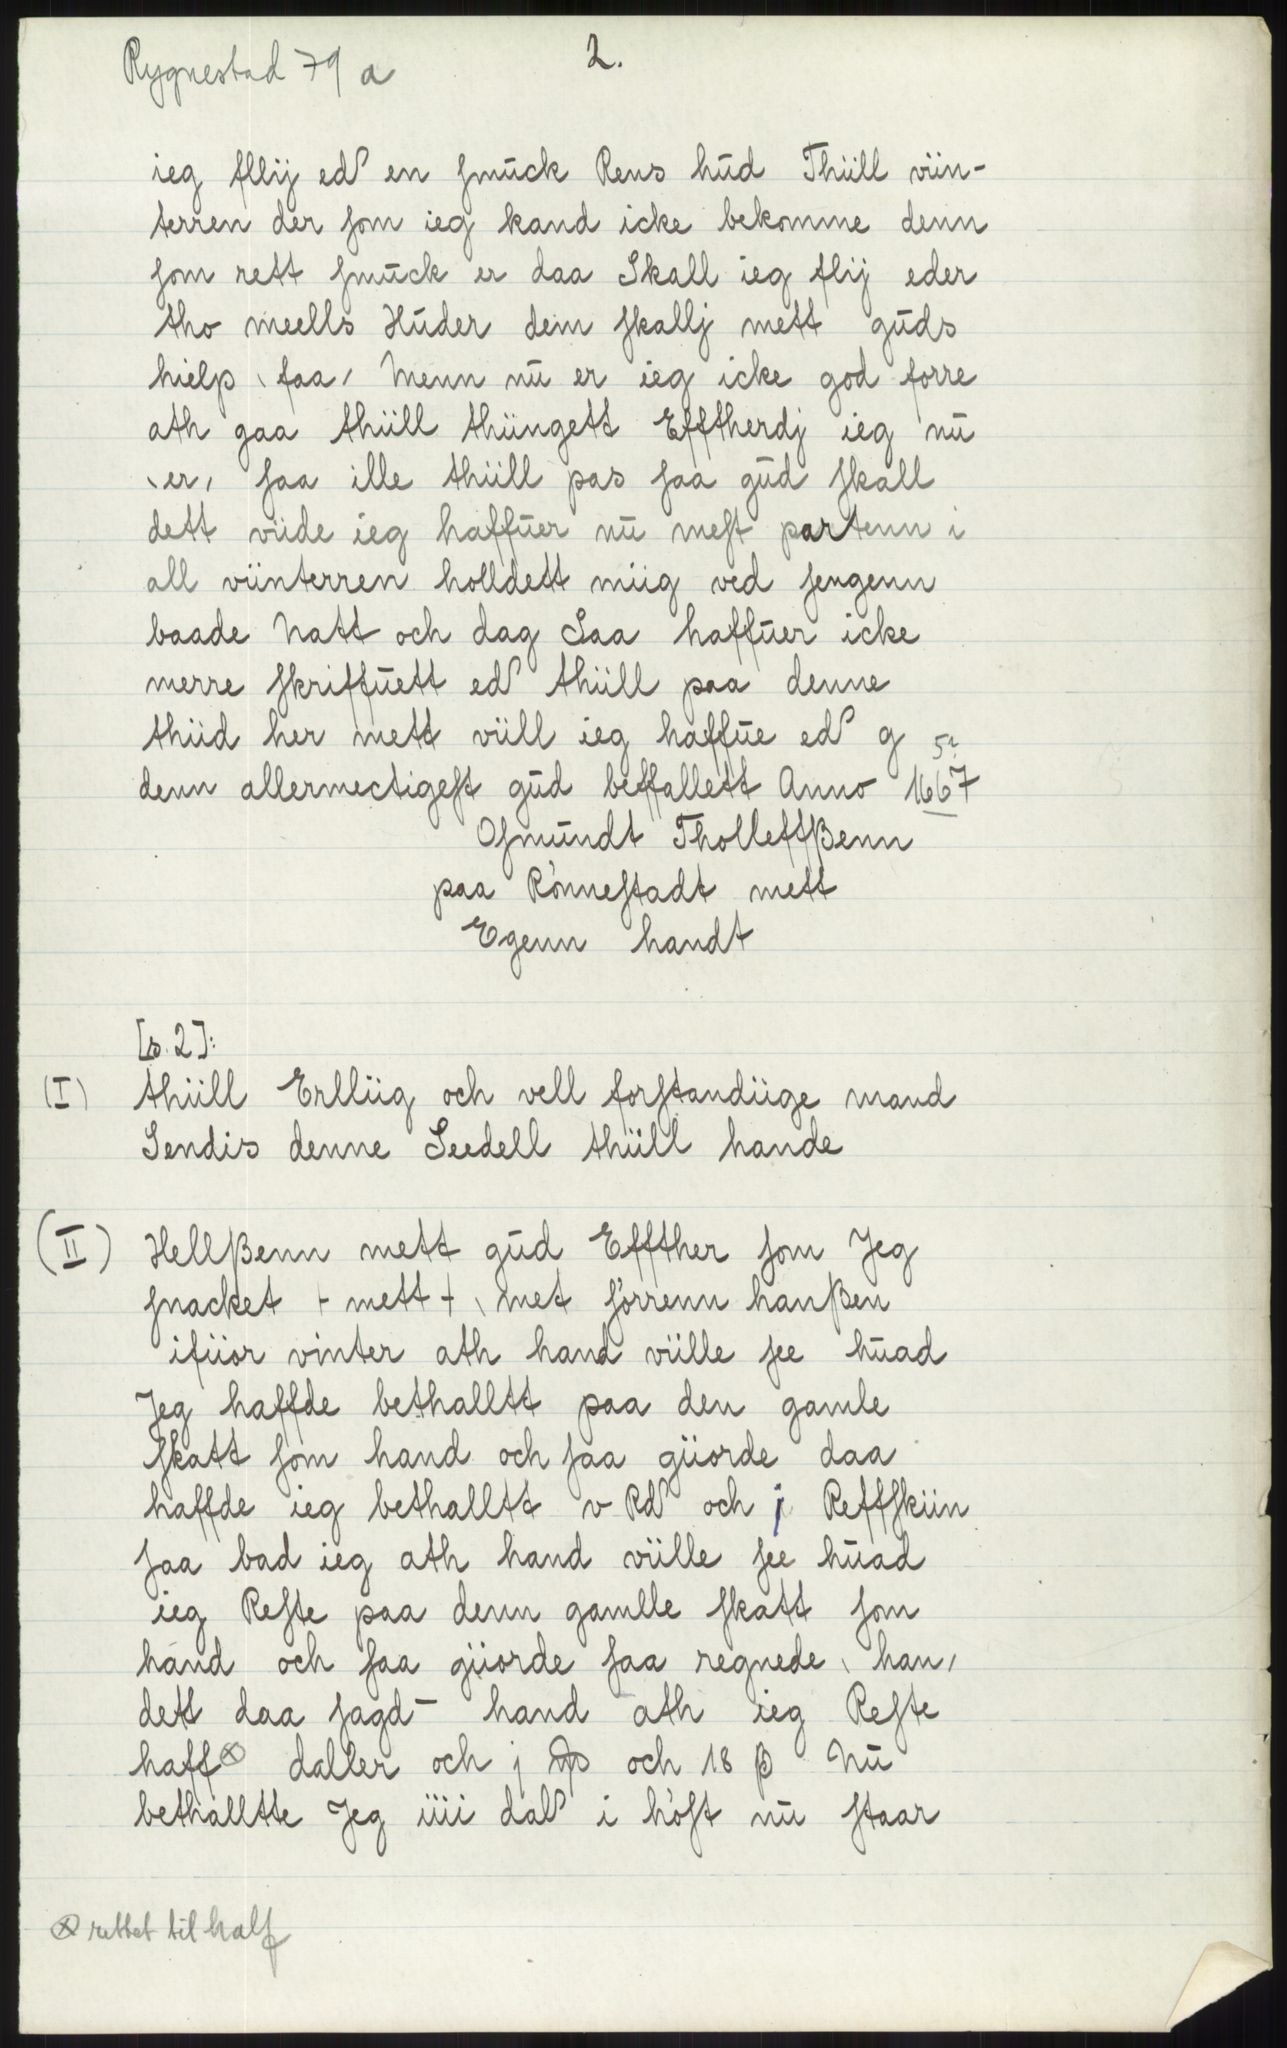 Rygnestad 79 a
2.
ieg fllij ed en smuck Rens hud Thiill viin-
terren der som ieg kand icke bekomme denn
som rett smuck er daa Skall ieg flij eder
tho meells Huder dem skallj mett guds
hielp ˎfaaˏ Menn nu er ieg icke god forre
ath gaa thiill thiingett Efftherdj ieg nu
ˎerˏ saa ille thiill pas saa gud skall
dett viide ieg haffuer nu mest partenn i
all viinterren holldett miig ved sengenn
baade Natt och dag Saa haffuer icke
merre skriffuett ed thiill paa denne
thiid her mett viill ieg haffue ed g
5?
denn allermectigest gud beffallett Anno 1667
Osmundt Tholleffßenn
paa Rönnestadt mett
Egenn handt
[s. 2]:
(I) thiill Erlliig och vell forstandiige mand
Sendis denne Seedell thiill hande
(II) Hellßenn mett gud Effther som Jeg
snacket ⊦ mett ⊣ ˎmet sörrenn hanßen
ifiior vinter ath hand viille see huad
Jeg haffde bethalltt paa den gamle
skatt som hand och saa giiorde daa
haffde ieg bethalltt v Rd och j Reffskiin
saa bad ieg ath hand viille see huad
ieg Reste paa denn gamlle skatt som
hand och saa giiorde saa regnede ˎhanˏ
dett daa sagd- hand ath ieg Reste
haff⊗ daller och j och 18 ß Nu
bethalltte Jeg iiii dal i höst nu staar
⊗ rettet til half